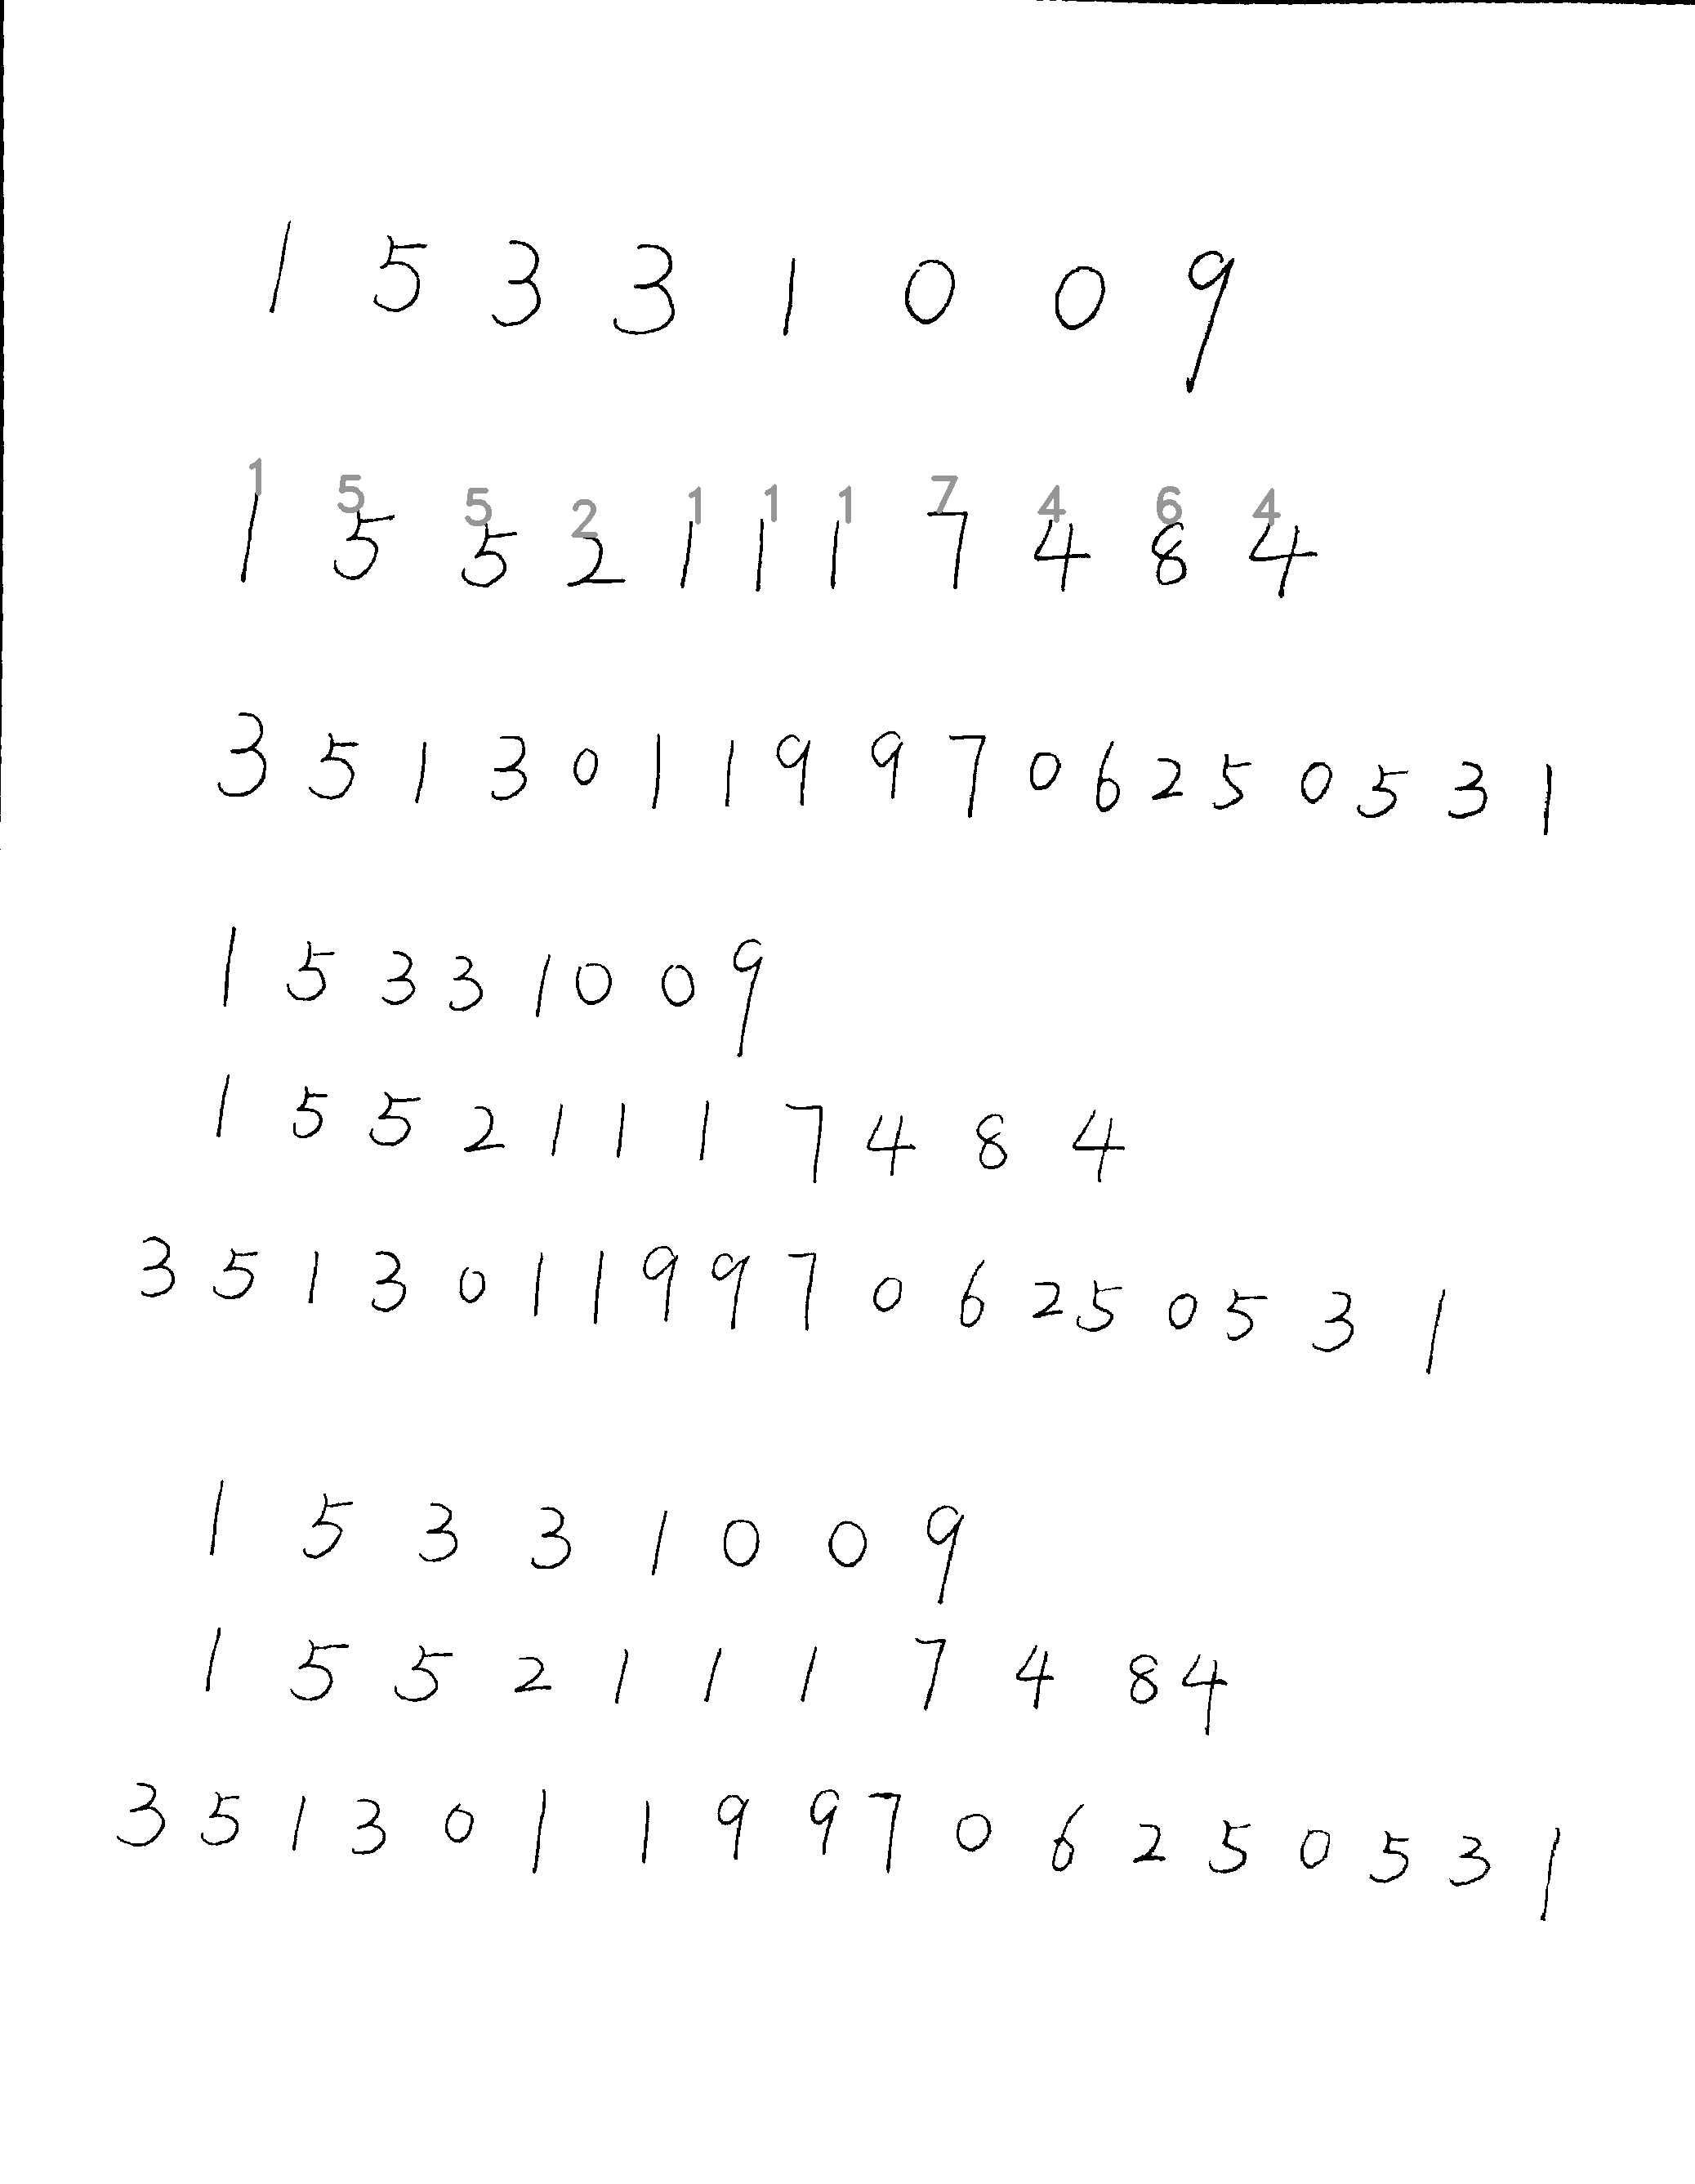 1 5 3 3 1 0 0 9
1 5 5 2 1 1 1 7 4 6 4
1 5 5 2 1 1 1 7 4 8 4
3 5 1 3 0 1 1 9 9 7 0 6 2 5 0 5 3 1
1 5 3 3 1 0 0 9
1 5 5 2 1 1 1 7 4 8 4
3 5 1 3 0 1 1 9 9 7 0 6 2 5 0 5 3 1
1 5 3 3 1 0 0 9
1 5 5 2 1 1 1 7 4 8 4
3 5 1 3 0 1 1 9 9 7 0 6 2 5 0 5 3 1